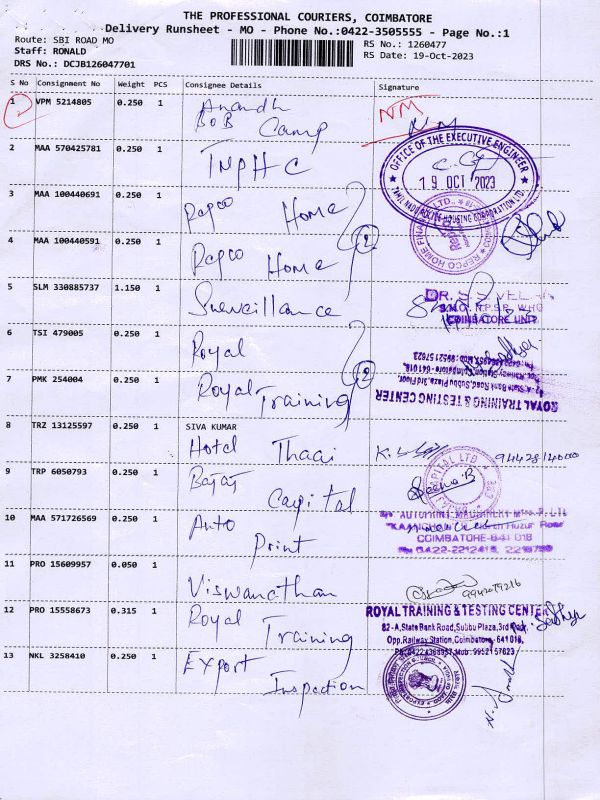 THE PROFESSIONAL COURIERS, COIMBATORE
Delivery Runsheet - MO - Phone No.:0422-3505555 - Page No.:1
Route: SBI ROAD MO
Staff: RONALD
DRS No.: DCJB126047701
RS No.: 1260477
RS Date: 19-Oct-2023
S No Consignment No Weight PCS Consignee Details Signature
1 VPM 5214805 0.250 1 Anandh
BOB Camp
NM
NM
2 MAA 570425781 0.250 1 TNPHC
OFFICE OF THE EXECUTIVE ENGINEER
19 OCT 2023
TAMIL NADU POLICE HOUSING CORPORATION LTD.
3 MAA 100440691 0.250 1 Repco Home
REPCO HOME FINANCE LTD.
4 MAA 100440591 0.250 1 Repco Home
2
5 SLM 330885737 1.150 1 Surveillance
COIMBATORE UNIT
6 TSI 479005 0.250 1 Royal
7 PMK 254004 0.250 1 Royal Training
2
ROYAL TRAINING & TESTING CENTER
8 TRZ 13125597 0.250 1 SIVA KUMAR
Hotel Thaai
9 TRP 6050793 0.250 1 Bajaj Capital
10 MAA 571726569 0.250 1 Auto Print
AUTOPRINT MACHINERY
COIMBATORE-641 018
11 PRO 15609957 0.050 1 Viswanathan
12 PRO 15558673 0.315 1 Royal Training
ROYAL TRAINING & TESTING CENTER
82-A, State Bank Road, Subbu Plaza, 3rd Floor,
Opp. Railway Station, Coimbatore - 641 018,
13 NKL 3258410 0.250 1 Export Inspection